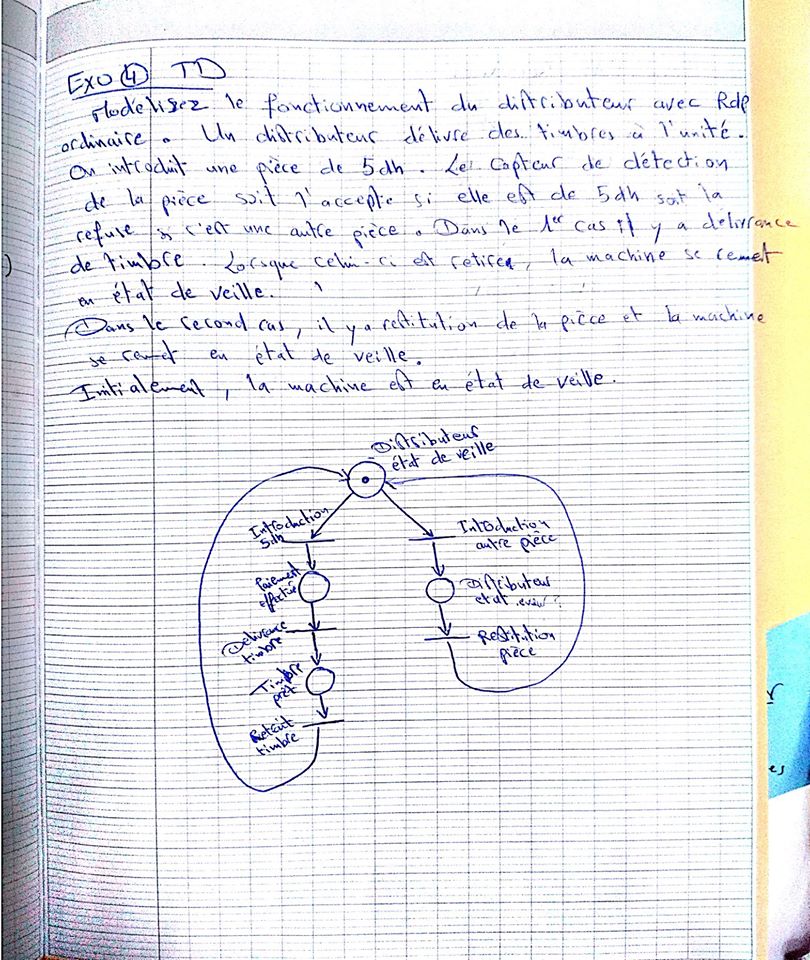 Exo ④ TD
Modelisez le fonctionnement du distributeur avec Rdp
ordinaire. Un distributeur délivre des timbres à l'unité.
On introduit une pièce de 5dh. Le capteur de détection
de la pièce soit l'accepte si elle est de 5dh soit la
refuse si c'est une autre pièce. Dans le 1er cas il y a délivrance
de timbre. Lorsque celui-ci est retiré, la machine se remet
en état de veille.
Dans le second cas, il y a restitution de la pièce et la machine
se remet en état de veille.
Initialement, la machine est en état de veille.
Distributeur
état de veille
Introduction
5dh
Introduction
autre pièce
Paiement
effectué
Distributeur
etat
Délivrance
timbre
Restitution
pièce
Timbre
prêt
Retrait
timbre